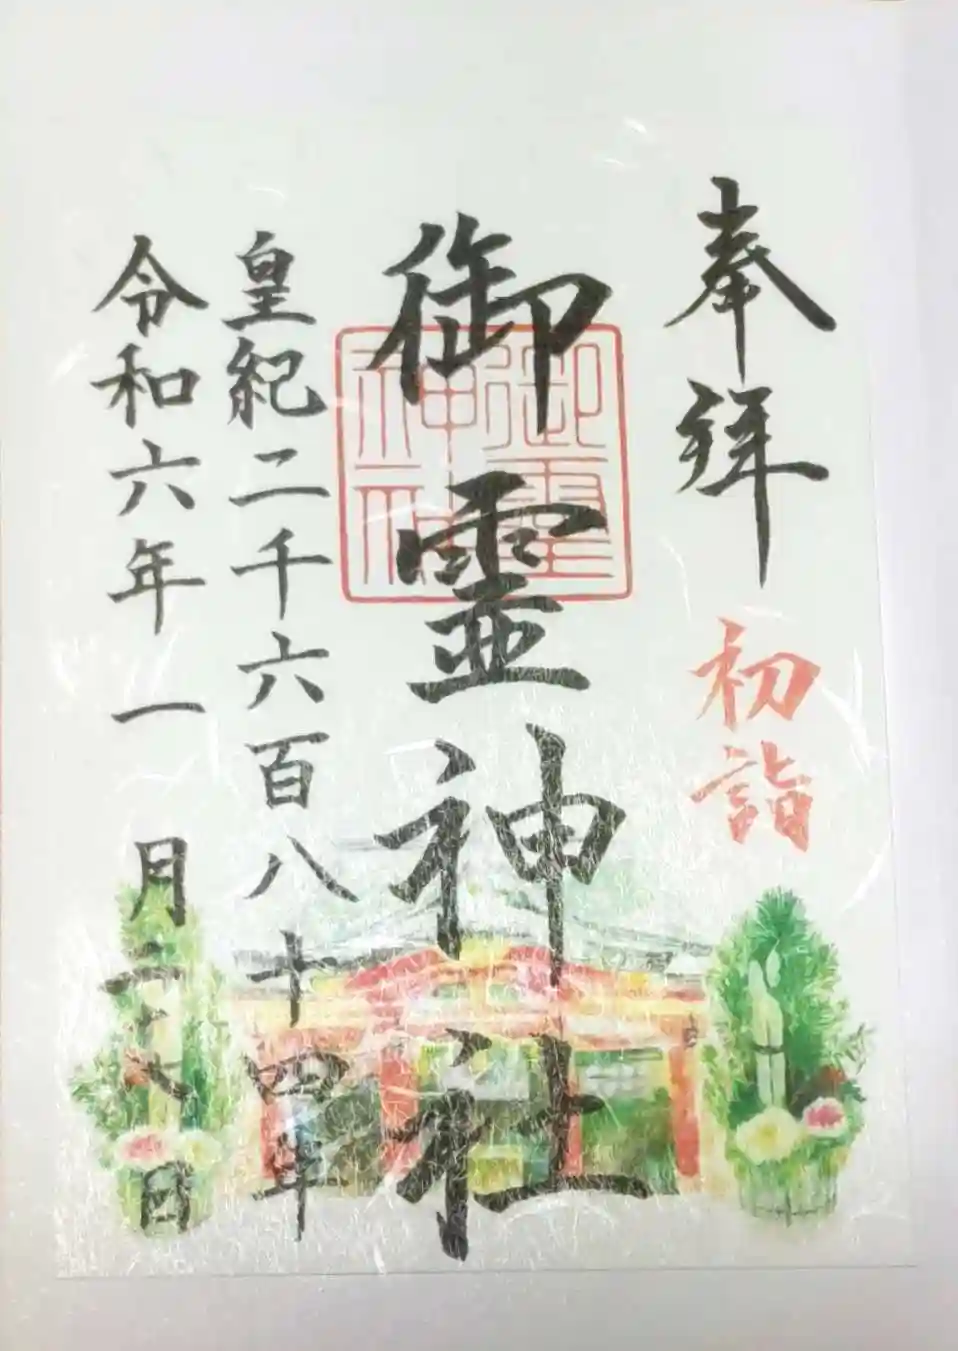 奉拝
初詣
御霊神社
御霊神社
皇紀二千六百八十四年
令和六年一月二十八日